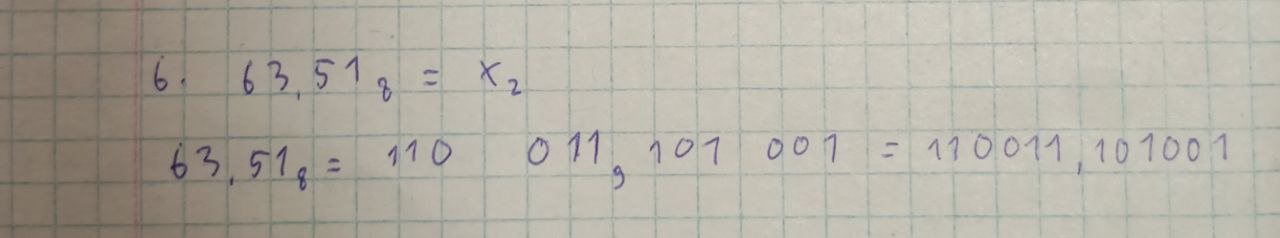 6. 63,51₈ = x₂
63,51₈ = 110 011, 101 001 = 110011,101001